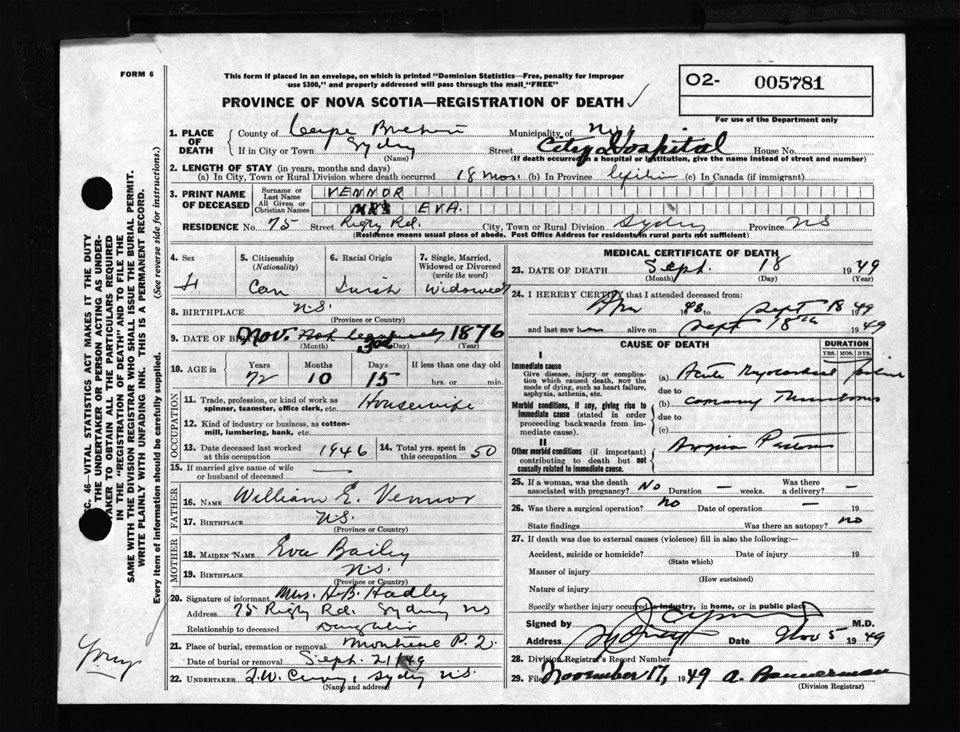 FORM 6
This form if placed in an envelope, on which is printed "Dominion Statistics—Free, penalty for improper
use $300," and properly addressed will pass through the mail "FREE"
O2- 005781
For use of the Department only
PROVINCE OF NOVA SCOTIA—REGISTRATION OF DEATH ✓
1. PLACE OF DEATH
County of Cape Breton Municipality of
If in City or Town Sydney (Name) Street City Hospital House No.
(If death occurred in a hospital or institution, give the name instead of street and number)
2. LENGTH OF STAY (in years, months and days)
(a) In City, Town or Rural Division where death occurred 18 mos. (b) In Province (c) In Canada (if immigrant)
3. PRINT NAME OF DECEASED
Surname or Last Name VENNOR
All Given or Christian Names MRS EVA.
RESIDENCE No. 75 Street Rigby Rd. City, Town or Rural Division Sydney Province NS
(Residence means usual place of abode. Post Office Address for residents in rural parts not sufficient)
4. Sex
5. Citizenship (Nationality) Can
6. Racial Origin
7. Single, Married, Widowed or Divorced (write the word) Widowed
8. BIRTHPLACE N.S.
(Province or Country)
9. DATE OF BIRTH Nov. 3rd 1876
(Month) (Day) (Year)
10. AGE in Years 72 Months 10 Days 15 If less than one day hrs. or min.
OCCUPATION
11. Trade, profession, or kind of work as spinner, teamster, office clerk, etc. Housewife
12. Kind of industry or business, as cotton-mill, lumbering, bank, etc.
13. Date deceased last worked at this occupation 1946
14. Total yrs. spent in this occupation 50
15. If married give name of wife or husband of deceased —
FATHER
16. NAME William E. Vennor
17. BIRTHPLACE N.S.
(Province or Country)
MOTHER
18. MAIDEN NAME Eva Bailey
19. BIRTHPLACE N.S.
(Province or Country)
20. Signature of informant Mrs. H.B. Hadley
Address 75 Rigby Rd. Sydney NS
Relationship to deceased Daughter
21. Place of burial, cremation or removal Montreal P.Q.
Date of burial or removal Sept. 21/49
22. UNDERTAKER Sydney N.S.
(Name and address)
MEDICAL CERTIFICATE OF DEATH
23. DATE OF DEATH Sept. 18 1949
(Month) (Day)
24. I HEREBY CERTIFY that I attended deceased from:
1948 to Sept 18 1949
and last saw h alive on Sept 18th 1949
CAUSE OF DEATH DURATION
YRS. MOS. DYS.
I
Immediate cause
Give disease, injury or complication which caused death, not the mode of dying, such as heart failure, asphyxia, asthenia, etc.
(a) Acute Myocardial failure
due to
(b) Coronary Thrombosis
Morbid conditions, if any, giving rise to immediate cause (stated in order proceeding backwards from immediate cause).
due to
(c)
II
Other morbid conditions (if important) contributing to death but not causally related to immediate cause.
Angina Pectoris
25. If a woman, was the death associated with pregnancy? No Duration — weeks. Was there a delivery? —
26. Was there a surgical operation? no Date of operation — 19
State findings Was there an autopsy? no
27. If death was due to external causes (violence) fill in also the following:—
Accident, suicide or homicide? Date of injury 19
(State which)
Manner of injury
(How sustained)
Nature of injury
Specify whether injury occurred in industry, in home, or in public place
Signed by M.D.
Address Sydney Date Nov 5 1949
28. Division Registrar's Record Number
29. Filed November 17, 1949 A. Bannerman
(Division Registrar)
SEC. 46—VITAL STATISTICS ACT MAKES IT THE DUTY
OF THE UNDERTAKER OR PERSON ACTING AS UNDER-
TAKER TO OBTAIN ALL THE PARTICULARS REQUIRED
IN THE "REGISTRATION OF DEATH" AND TO FILE THE
SAME WITH THE DIVISION REGISTRAR WHO SHALL ISSUE THE BURIAL PERMIT.
WRITE PLAINLY WITH UNFADING INK. THIS IS A PERMANENT RECORD.
Every item of information should be carefully supplied. (See reverse side for instructions.)